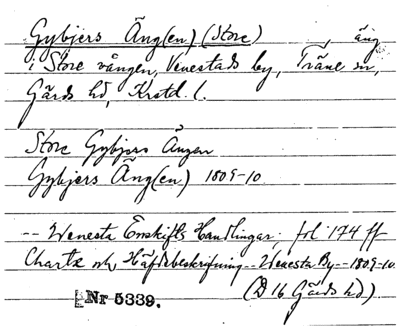 Gybjers Äng(en) (Store) , äng
i Store vången, Venestads by, Träne sn,
Gärds hd, Krstd. l.
Store Gybjers Ängen
Gybjers Äng(en) 1809-10
-- Wenesta Enskifts Handlingar; fol. 174 ff
Charta och Häfdebeskrifning -- Wenesta By -- 1809-10.
(D 16 Gärds hd)
Nr 5339.